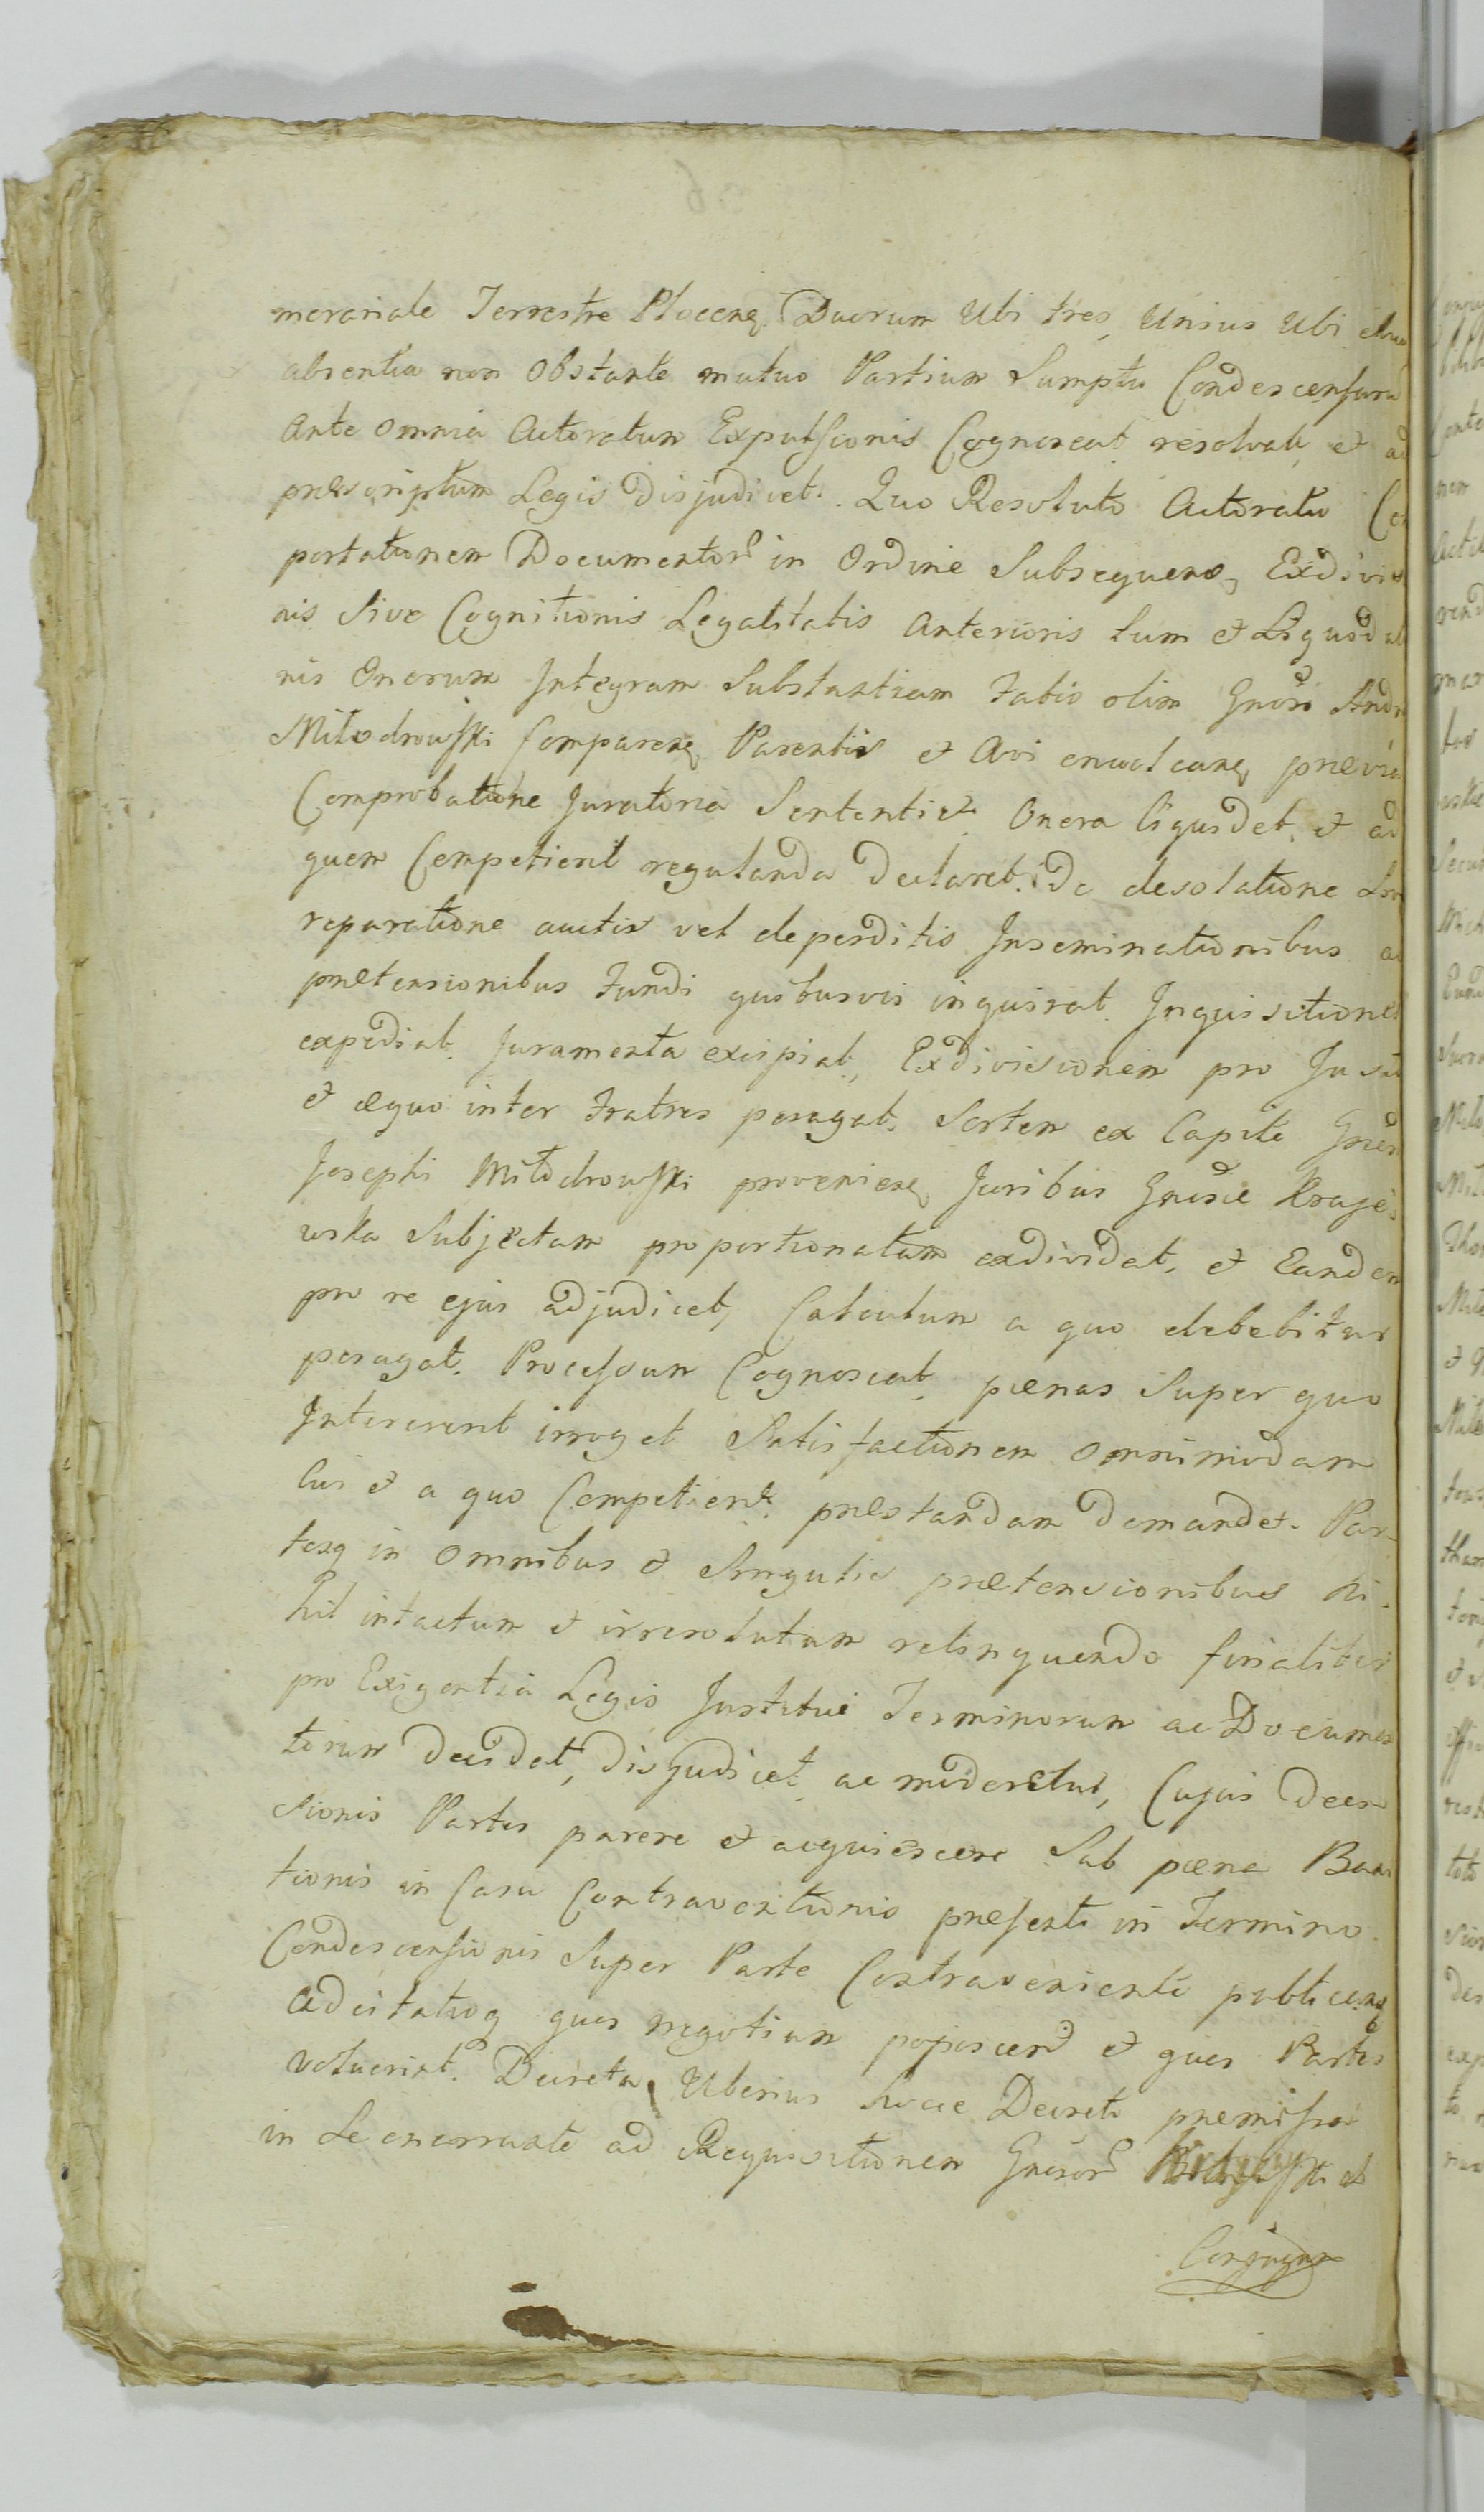 merariale Terrestre Plocen. Duorum Ubi tres, Unius Ubi duo
absentia non Obstante mutuo Partium Sumptu Condescensura
Ante omnia Actoratum Expulsionis Cognoscat resolvat, et ad
præscriptum Legis disjudicet. Quo Resoluto Actoratu Com
portationem Documentor in Ordine Subsequen. Exdivisio
nis Sive Cognitionis Legalitatis Anterioris tum et Liquidatio
nis Onerum Integram Substantiam olim Gnosi Andr
Miłodrowski Comparen. Parentis et Avi prævia
Comprobatione Juratoria Onera liquidet, et ad
quem Competierit regulanda declaret. De desolatione
reparatione auctis vel deperditis Inseminationibus ac
prætensionibus Fundi quibusvis inquirat. Inquisitiones
expediat. Juramenta excipiat, Exdivisionem pro Justo
et æquo inter Fratres peragat. Sortem ex Capite Gnosi
Josephi Miłodrowski provenien. Juribus Gnosæ Krajew
ska Subjectam proportionatam exdividat, et Eandem
pro re ejus adjudicet, Calculum a quo debebitur
peragat. Processum Cognoscat, pænas Super quo
Intererint irroget Satisfactionem omnimodam
Cui et a quo Competierit præstandam demandet. Par-
tesq in Omnibus et Singulis prætensionibus ni-
hil intactum et irresolutum relinquendo finaliter
pro Exigentia Legis Justitiæ Terminorum ac Documen
torum decidat, disjudicet ac moderetur, Cujus deci
sionis Partes parere et acquiescere Sub pæna Banni
tionis in Casu Contraventionis præsenti in Termino
Condescensionis Super Parte Contraveniente publican.
adcitatuq quos negotium poposcerit et quos Partes
voluerint. Decreta, Uberius hocce Decreto præmissa
in Se enarrante ad Requisitionem Gnosor et
Conjugum